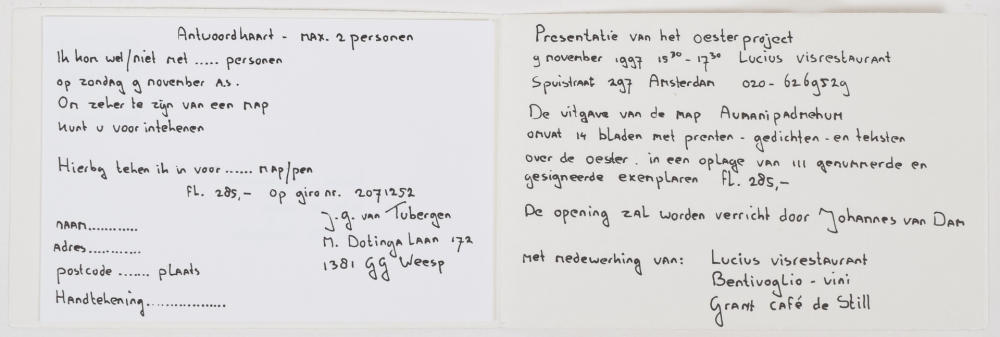 Antwoordkaart - max. 2 personen
Ik kom wel/niet met ..... personen
op zondag 9 november a.s.
Om zeker te zijn van een map
kunt u voorintekenen
Hierbij teken ik in voor ...... map/pen
FL. 285,- op giro nr. 2071252
J.G. van Tubergen
M. Dotinga Laan 172
1381 GG Weesp
naam............
Adres............
postcode ....... plaats
Handtekening..................
Presentatie van het oesterproject
9 november 1997 15³⁰ - 17³⁰ Lucius visrestaurant
Spuistraat 297 Amsterdam 020 - 6269529
De uitgave van de map Aumanipadmehum
omvat 14 bladen met prenten - gedichten - en teksten
over de oester. in een oplage van 111 genummerde en
gesigneerde exemplaren FL. 285,-
De opening zal worden verricht door Johannes van Dam
met medewerking van: Lucius visrestaurant
Bentivoglio - vini
Grant café de Still